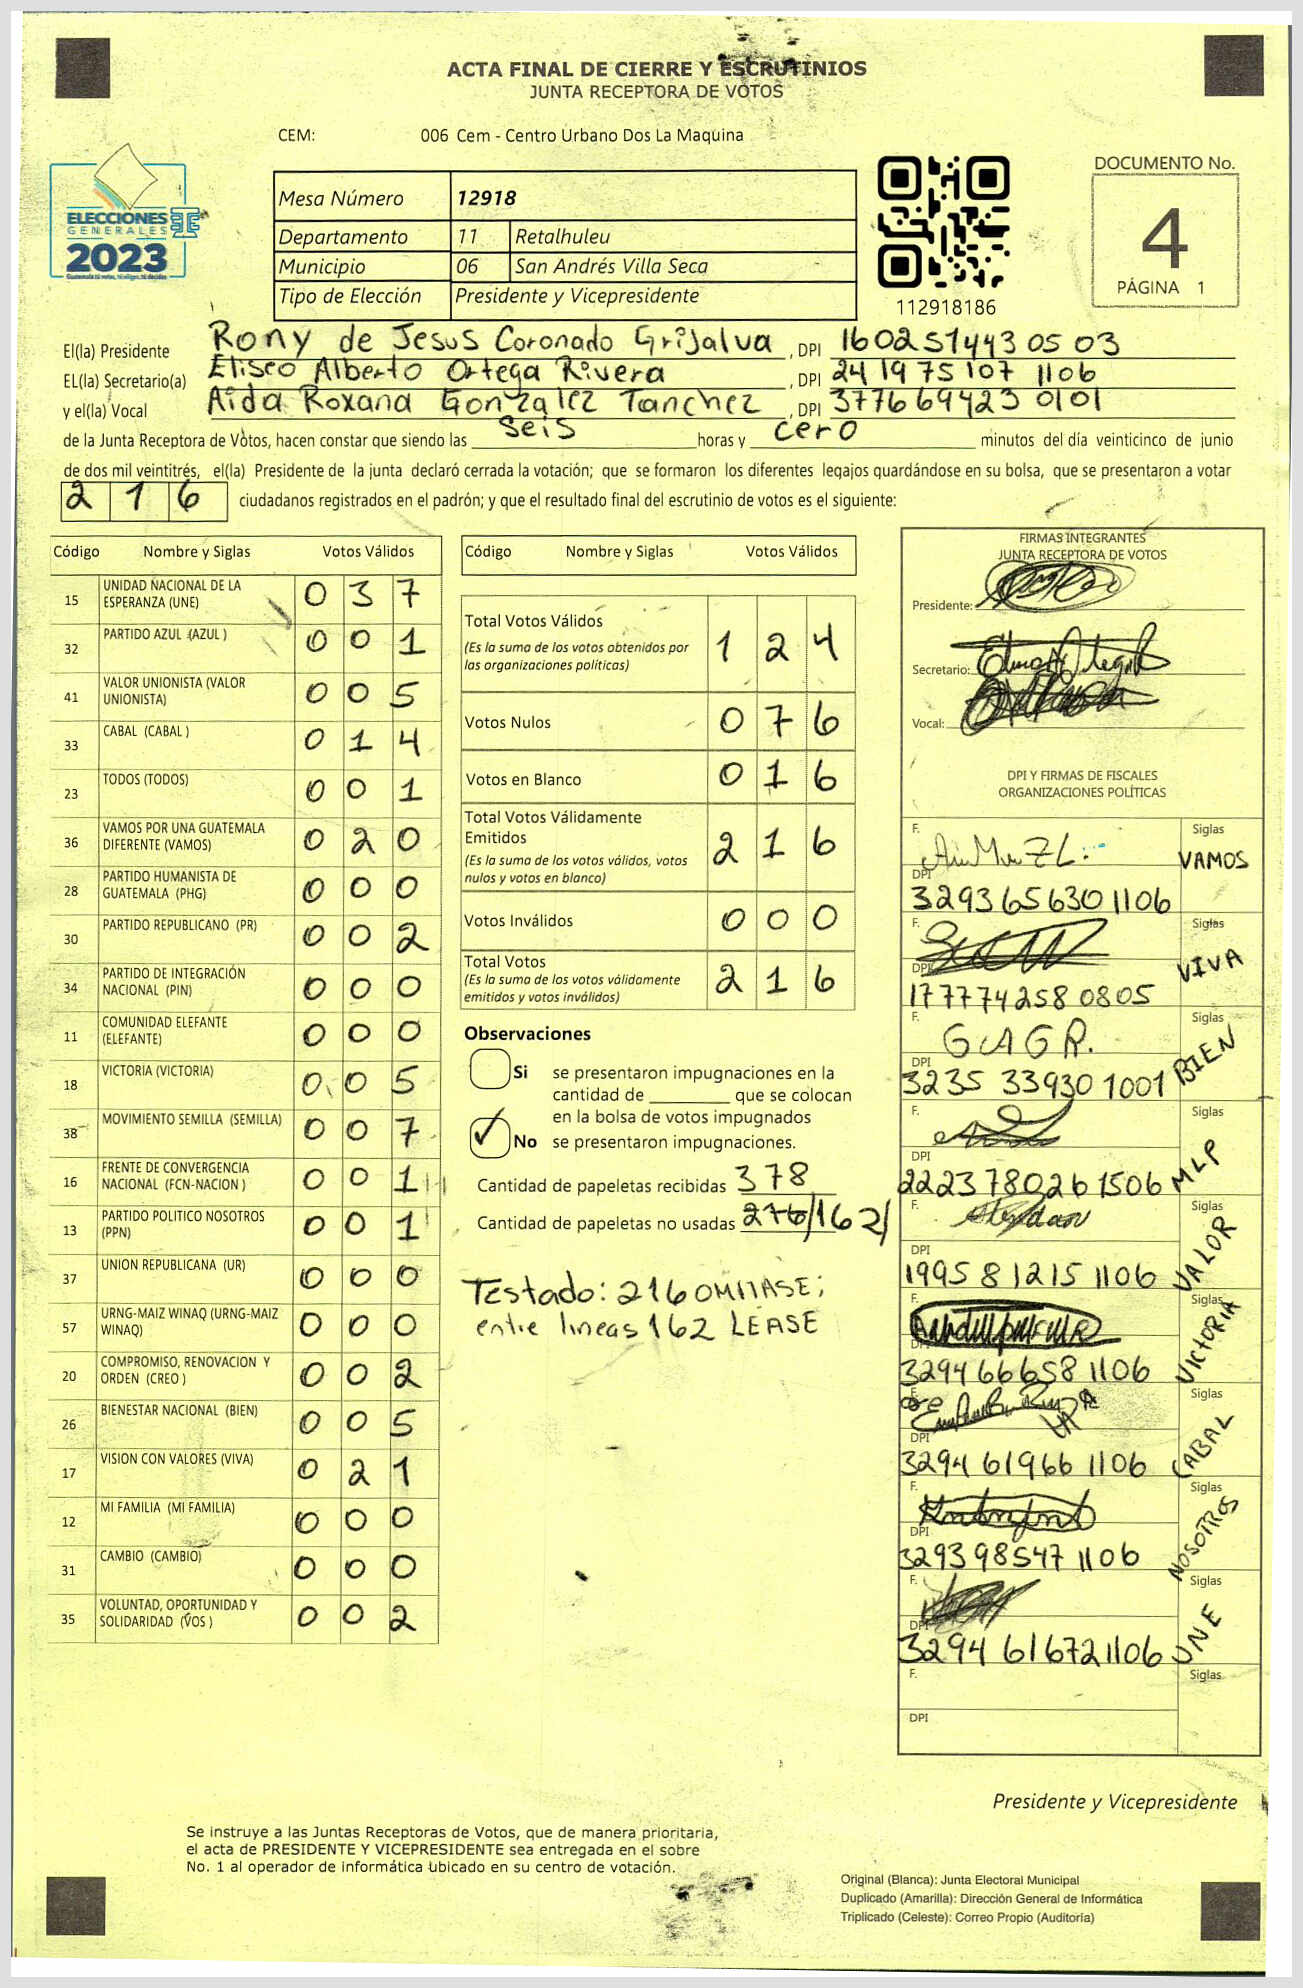 ACTA FINAL DE CIERRE Y ESCRUTINIOS
JUNTA RECEPTORA DE VOTOS
CEM: 006 Cem - Centro Urbano Dos La Maquina
ELECCIONES
GENERALES
2023
Mesa Número 12918
Departamento 11 Retalhuleu
Municipio 06 San Andrés Villa Seca
Tipo de Elección Presidente y Vicepresidente
112918186
DOCUMENTO No.
4
PÁGINA 1
El(la) Presidente Rony de Jesus Coronado Grijalva, DPI 160251443 05 03
EL(la) Secretario(a) Eliseo Alberto Ortega Rivera, DPI 24 19 75 107 1106
y el(la) Vocal Aida Roxana Gonzalez Tanchez, DPI 377669423 0101
de la Junta Receptora de Votos, hacen constar que siendo las seis horas y cero minutos del día veinticinco de junio
de dos mil veintitrés, el(la) Presidente de la junta declaró cerrada la votación; que se formaron los diferentes legajos quardándose en su bolsa, que se presentaron a votar
2 1 6 ciudadanos registrados en el padrón; y que el resultado final del escrutinio de votos es el siguiente:
Código Nombre y Siglas Votos Válidos
15 UNIDAD NACIONAL DE LA ESPERANZA (UNE) 0 3 7
32 PARTIDO AZUL (AZUL ) 0 0 1
41 VALOR UNIONISTA (VALOR UNIONISTA) 0 0 5
33 CABAL (CABAL ) 0 1 4
23 TODOS (TODOS) 0 0 1
36 VAMOS POR UNA GUATEMALA DIFERENTE (VAMOS) 0 2 0
28 PARTIDO HUMANISTA DE GUATEMALA (PHG) 0 0 0
30 PARTIDO REPUBLICANO (PR) 0 0 2
34 PARTIDO DE INTEGRACIÓN NACIONAL (PIN) 0 0 0
11 COMUNIDAD ELEFANTE (ELEFANTE) 0 0 0
18 VICTORIA (VICTORIA) 0 0 5
38 MOVIMIENTO SEMILLA (SEMILLA) 0 0 7
16 FRENTE DE CONVERGENCIA NACIONAL (FCN-NACION ) 0 0 1
13 PARTIDO POLITICO NOSOTROS (PPN) 0 0 1
37 UNION REPUBLICANA (UR) 0 0 0
57 URNG-MAIZ WINAQ (URNG-MAIZ WINAQ) 0 0 0
20 COMPROMISO, RENOVACION Y ORDEN (CREO ) 0 0 2
26 BIENESTAR NACIONAL (BIEN) 0 0 5
17 VISION CON VALORES (VIVA) 0 2 1
12 MI FAMILIA (MI FAMILIA) 0 0 0
31 CAMBIO (CAMBIO) 0 0 0
35 VOLUNTAD, OPORTUNIDAD Y SOLIDARIDAD (VOS ) 0 0 2
Código Nombre y Siglas Votos Válidos
Total Votos Válidos 1 2 4
(Es la suma de los votos obtenidos por
las organizaciones políticas)
Votos Nulos 0 7 6
Votos en Blanco 0 1 6
Total Votos Válidamente
Emitidos 2 1 6
(Es la suma de los votos válidos, votos
nulos y votos en blanco)
Votos Inválidos 0 0 0
Total Votos 2 1 6
(Es la suma de los votos válidamente
emitidos y votos inválidos)
Observaciones
Si se presentaron impugnaciones en la
cantidad de ________ que se colocan
en la bolsa de votos impugnados
No se presentaron impugnaciones.
Cantidad de papeletas recibidas 378
Cantidad de papeletas no usadas 216/162/
Testado: 216 OMITASE;
entre lineas 162 LEASE
FIRMAS INTEGRANTES
JUNTA RECEPTORA DE VOTOS
Presidente:
Secretario:
Vocal:
DPI Y FIRMAS DE FISCALES
ORGANIZACIONES POLÍTICAS
F. Siglas
VAMOS
DPI
3293 65630 1106
F. Siglas
VIVA
DPI
177774258 0805
F. Siglas
G.A.G.R. BIEN
DPI
3235 33930 1001
F. Siglas
MLP
DPI
222378026 1506
F. Siglas
VALOR
DPI
1995 81215 1106
F. Siglas
VICTORIA
DPI
3294 66658 1106
F. Siglas
CABAL
DPI
3294 61966 1106
F. Siglas
NOSOTROS
DPI
3293 98547 1106
F. Siglas
UNE
DPI
3294 61672 1106
F. Siglas
DPI
Presidente y Vicepresidente
Se instruye a las Juntas Receptoras de Votos, que de manera prioritaria,
el acta de PRESIDENTE Y VICEPRESIDENTE sea entregada en el sobre
No. 1 al operador de informática ubicado en su centro de votación.
Original (Blanca): Junta Electoral Municipal
Duplicado (Amarilla): Dirección General de Informática
Triplicado (Celeste): Correo Propio (Auditoría)